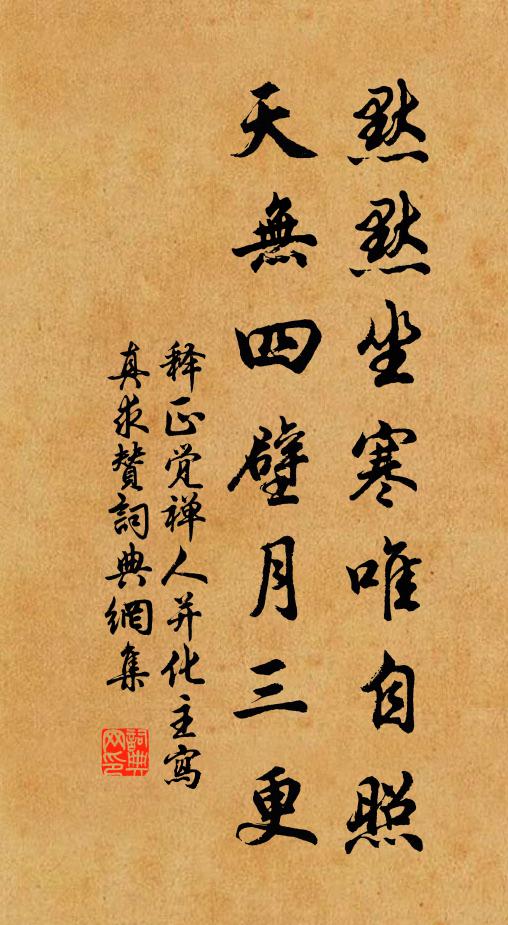 默默坐寒唯自照
天無四壁月三更
释正觉禅人并化主寫
真求贊詞典網集
詞典网印